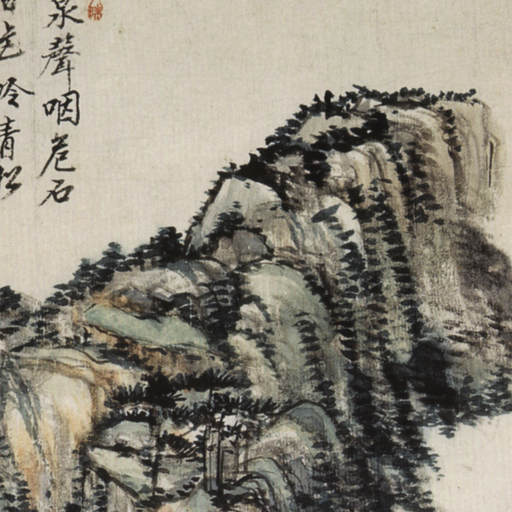 泉聲咽危石
日色冷青松